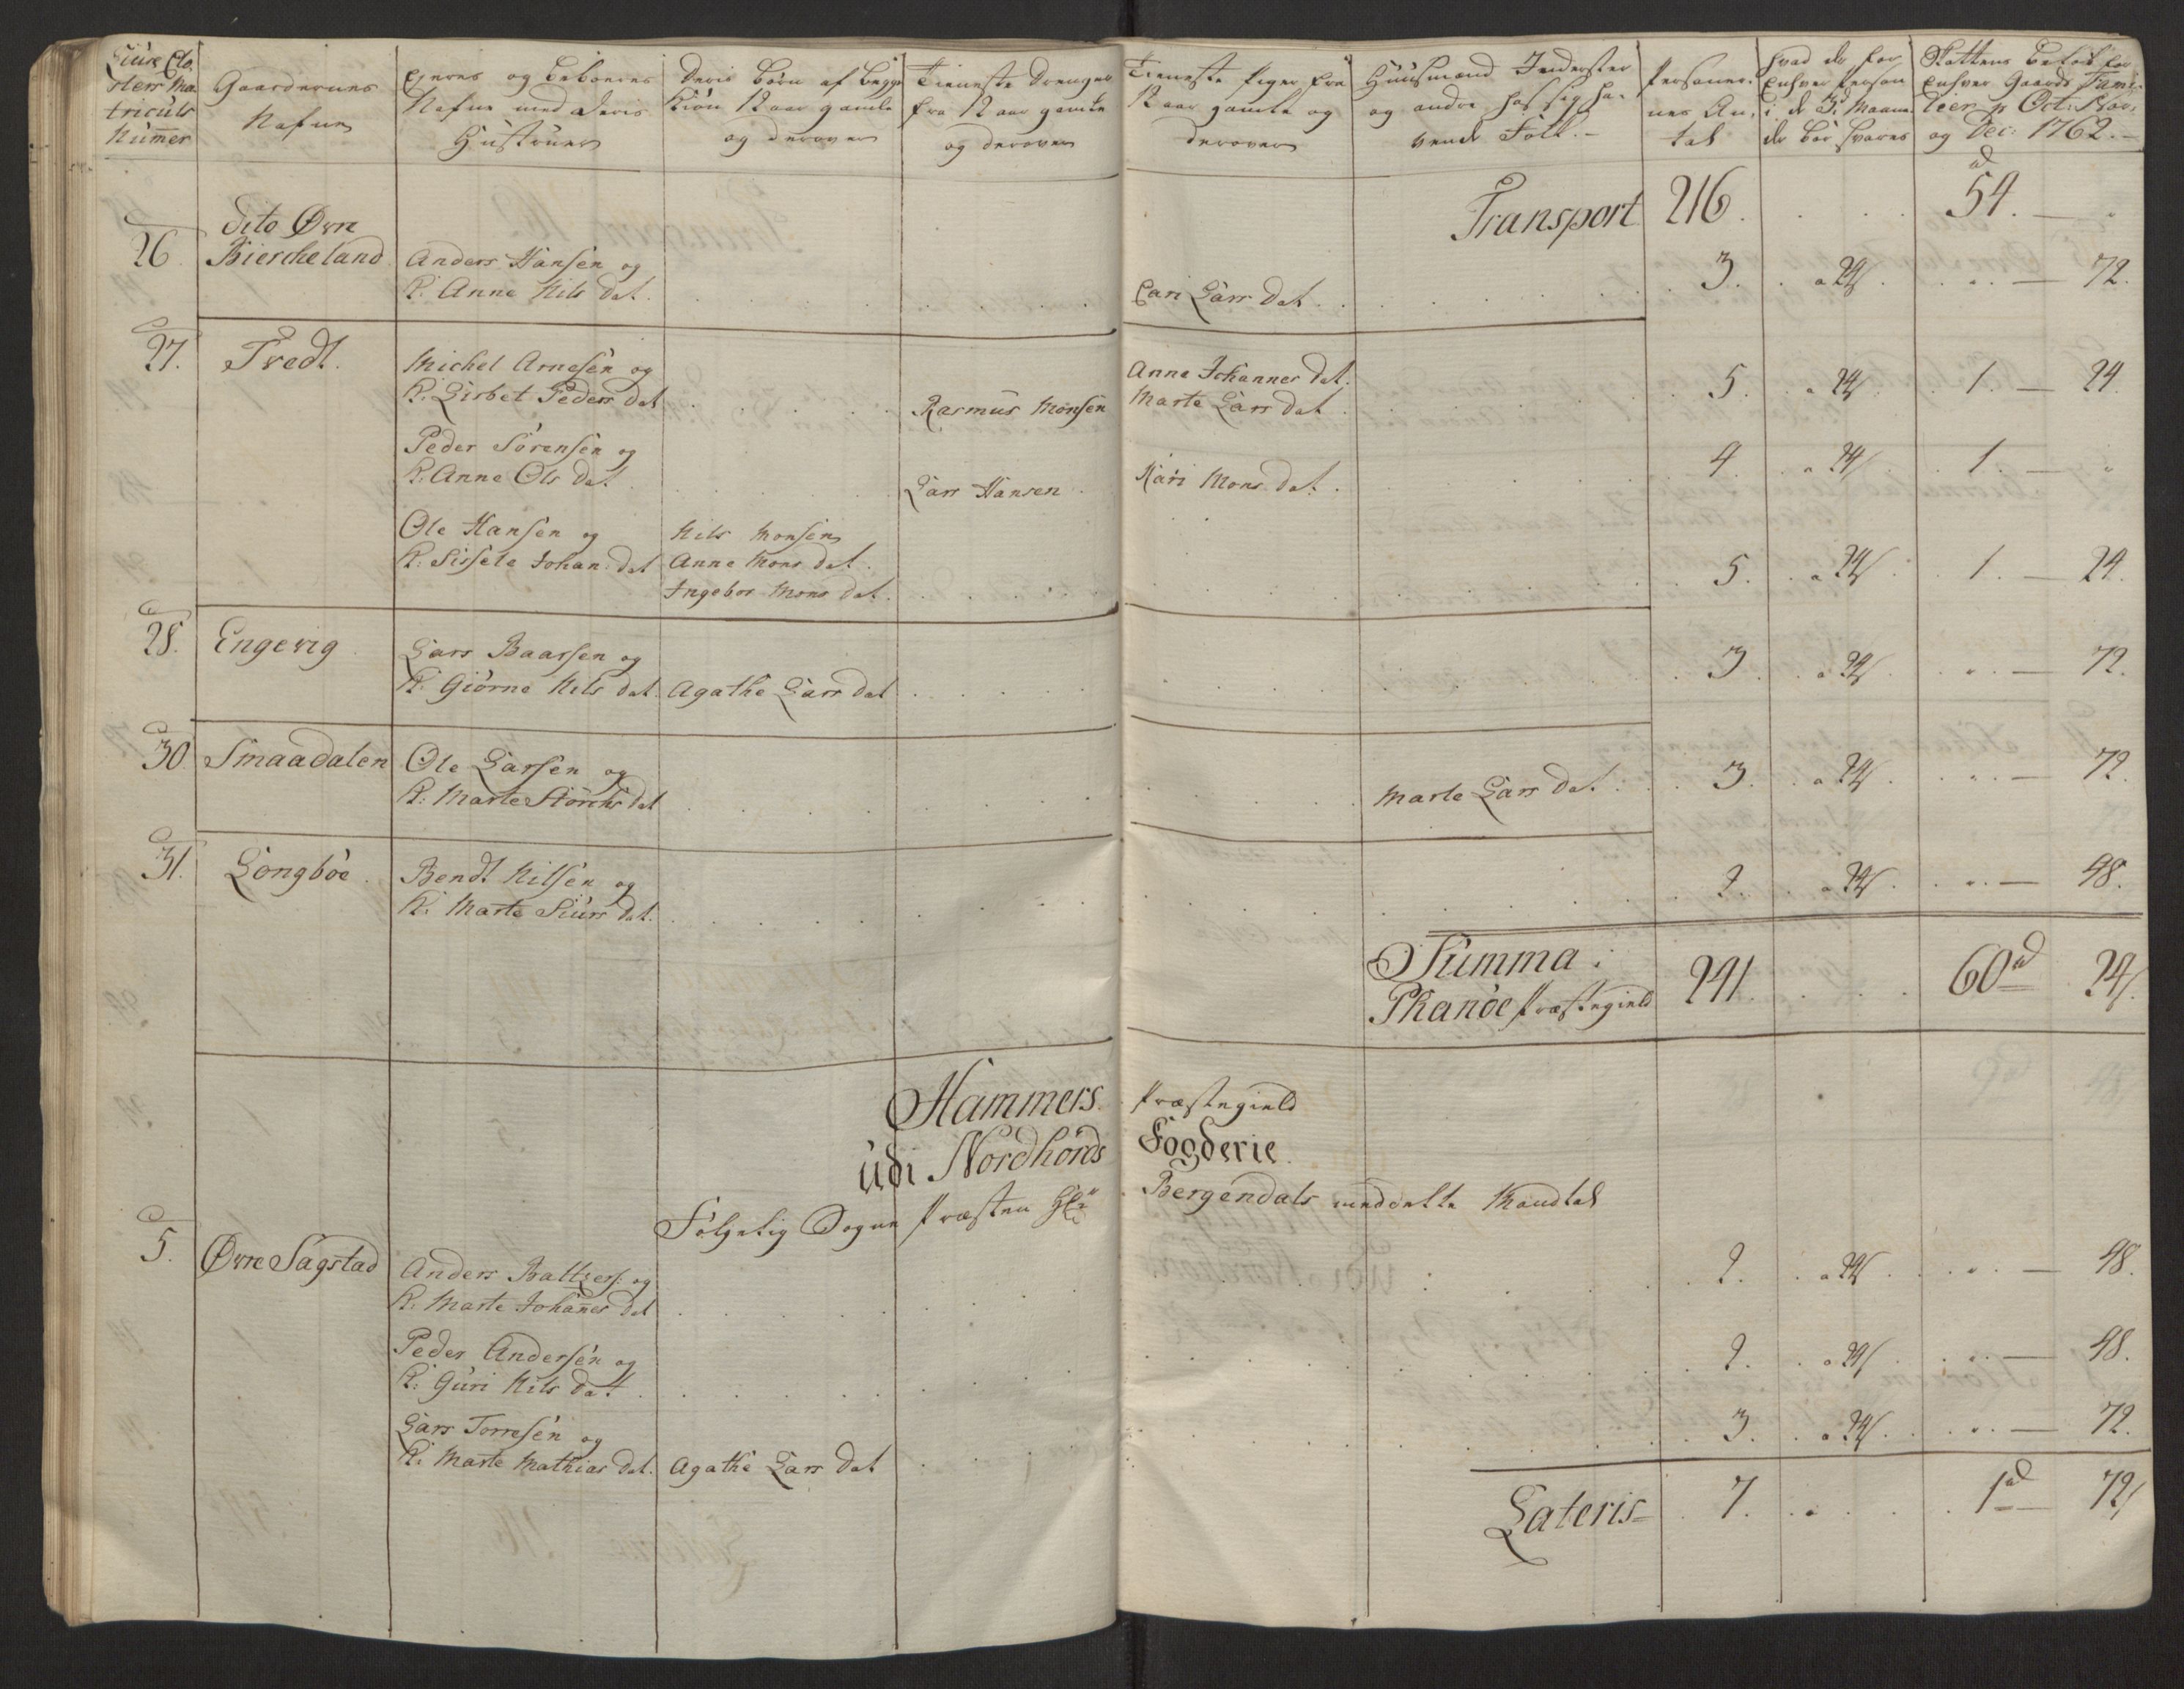 Liüse Clo-
sters Ma-
triculs
Nummer
Gaardernes
Nafne
Ejeres og Beboeres
Nafne med Deris
Hustruer
Deris Børn af begge
Kiøn 12 aar gamle
og derover
Tieneste Drenger
fra 12 aar gamle
og derover
Tieneste Piger fra
12 aar gamle og
derover
Huusmænd Inderster
og andre hos sig ha-
vende Folk.-
Personer-
nes An-
tal
hvad der for
Enhver Person
i de 3de Maane-
der bør svares
Skattens Beløb for
Enhver Gaards Fami-
lier pr Oct: Nov:
og Dec: 1762.-
Transport 216. . . . 54. — "
26. Dito Øvre
Biercheland Anders Hansen og
K: Anne Nils dat. Cari Lars dat. 3. a 24 s. " — 72.
27. Tvedt. Michel Arnesen og
K: Lisbet Peders dat Rasmus Monsen Anna Johannes dat.
Marte Lars dat 5. a 24. 1. — 24.
Peder Sörensen og
K: Anne Ols dat Lars Hansen Kari Mons dat. 4. a 24 1. — "
Ole Hansen og
K: Sissele Johan: dat
Nils Monsen
Anne Mons dat.
Ingebor Mons dat. 5. a 24 1. — 24.
28. Engevig. Lars Baarsen og
K: Giörne Nils dat. Agathe Lars dat 3. a 24 " — 72.
30. Smaadalen Ole Larsen og
K: Marte Störchs dat Marte Lars dat. 3. a 24 " — 72.
31. Longböe. Bendt Nilsen og
K: Marte Siurs dat. 2. a 24 " — 48.
Summa i
Phanöe Præstegield 241. . . . 60 rd 24 s.
Hammers Præstegield
üdi Nordhords Fogderie.
Følgelig Sogne Præsten Hr Bergendals meddeelte Mandtal
5. Øvre Sagstad Anders Baltzers: og
K: Marte Johannes dat 2. a 24 " — 48.
Peder Andersen og
K: Guri Nils dat. 2. a 24 " — 48.
Lars Torresen og
K: Marte Mathias dat. Agathe Lars dat 3. a 24 " — 72.
Lateris 7. . . . 1 rd 72